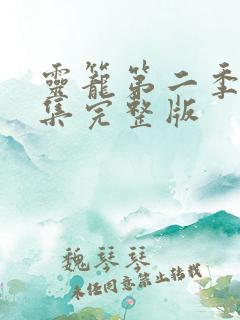 靈籠第二季
集完整版
魏琴琴
未经同意禁止转载